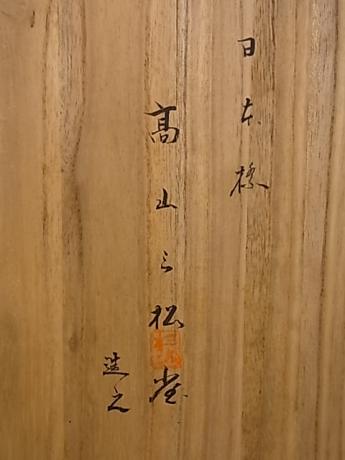 日本橋
髙山三松堂
造之